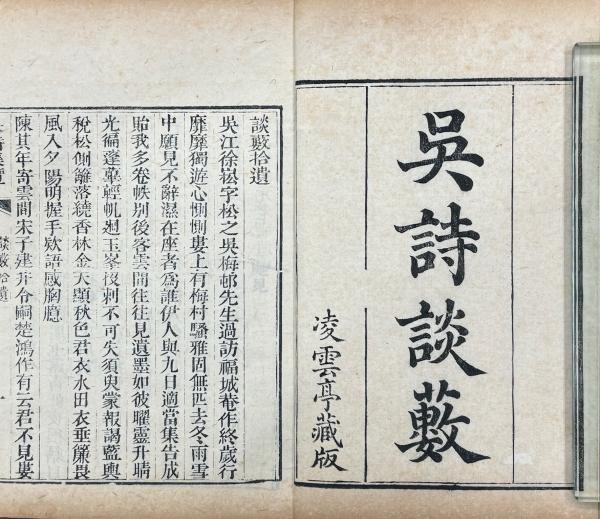 吳詩談藪
凌雲亭藏版
談藪拾遺
吳江徐崧字松之吳梅邨先生過訪福城菴作終歲行
靡靡獨遊心惻惻婁上有梅村騷雅固無匹去冬雨雪
中願見不辭濕在座者為誰伊人與九日適當集告成
貽我多卷帙別後客雲間往往見遺墨如彼曜靈升晴
光徧蓬蓽輕帆廻玉峯投刺不可失須臾蒙報謁藍輿
稅松側籬落繞香林金天顯秋色君衣水田衣垂簾畏
風入夕陽明握手欵語感胸臆
陳其年寄雲間宋子建幷令嗣楚鴻作有云君不見婁
談藪拾遺
一